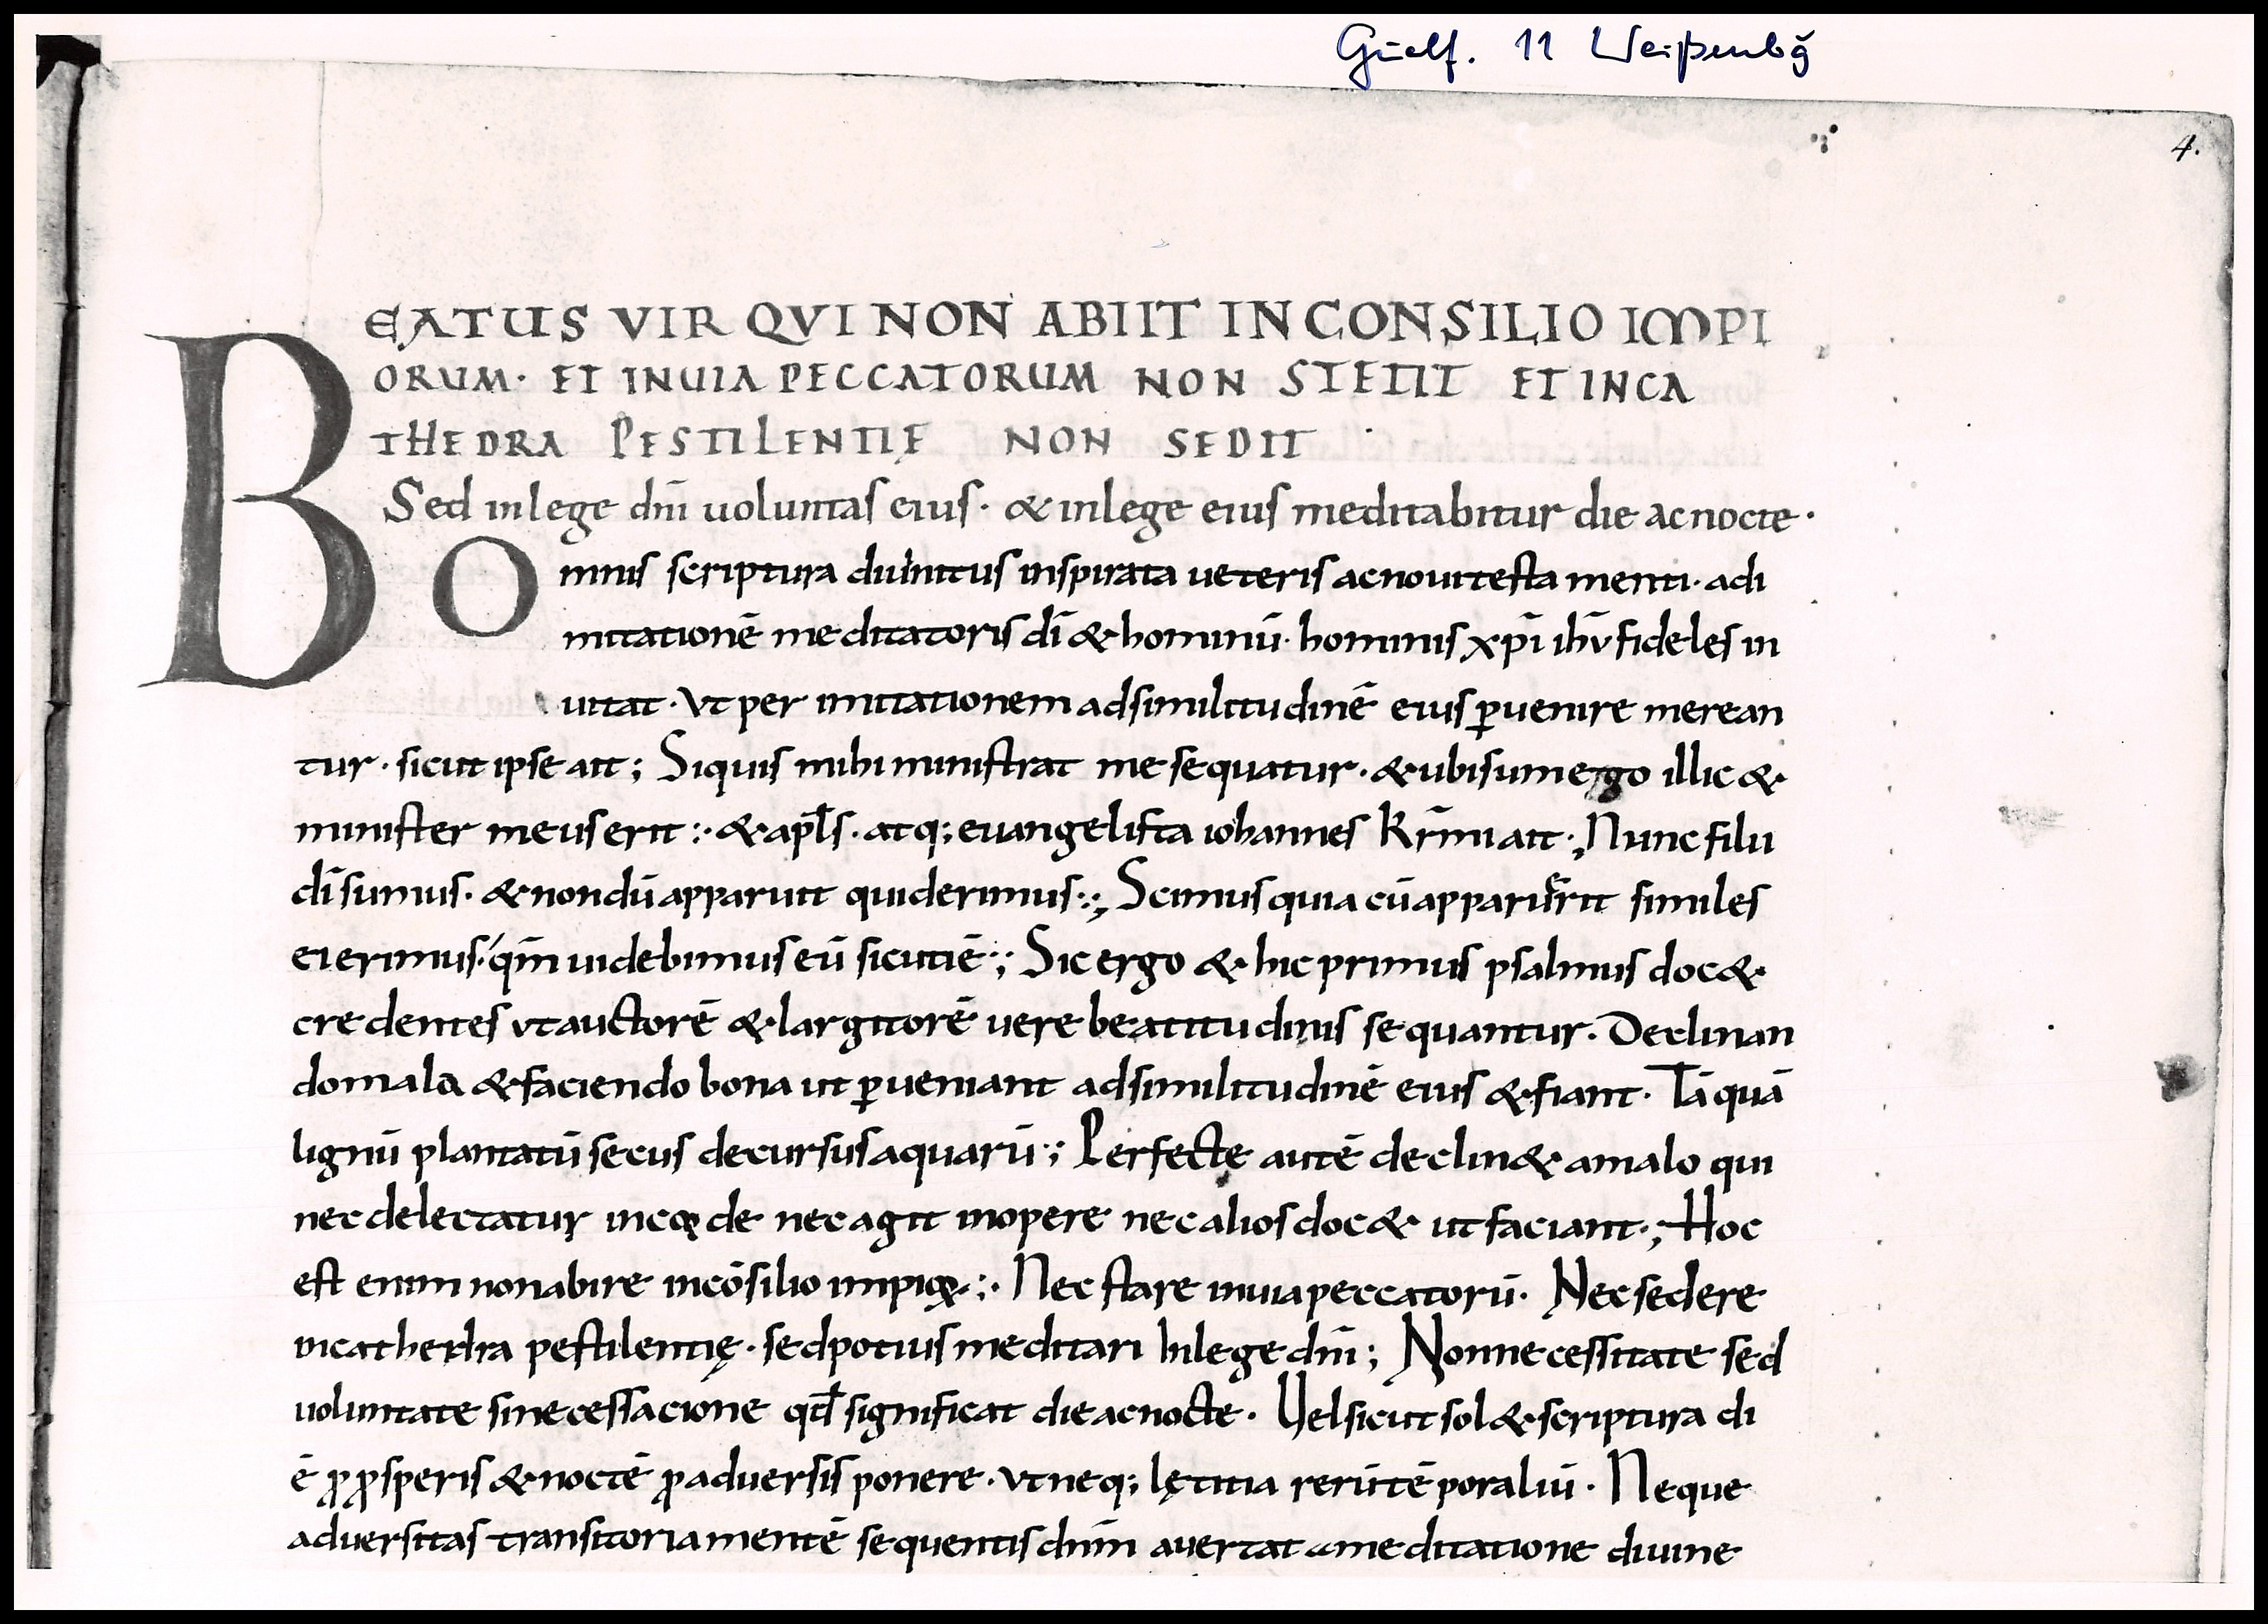 Guelf. 11 Weißenbg̃
4.
BEATUS VIR QVI NON ABIIT IN CONSILIO IMPI
ORUM· ET IN UIA PECCATORUM NON STETIT ET IN CA
THEDRA PESTILENTIĘ NON SEDIT
Sed in lege dn̄i uoluntas eius· & in lege eius meditabitur die ac nocte·
Omnis scriptura diuinitus inspirata ueteris ac noui testamenti· ad i
mitationē meditatoris dī & hominū· hominis xp̄i ih̄v fideles in
uitat· vt per imitationem ad similitudinē eius ꝑuenire merean
tur· sicut ipse ait; Si quis mihi ministrat me sequatur· & ubi sum ego illic &
minister meus erit :· & apl̄s· atq; euangelista iohannes kr̄mi ait·; Nunc filii
dī sumus· & nondū apparuit quid erimus:·; Scimus quia cū apparuerit similes
ei erimus· qm̄ uidebimus eū sicuti ē·; Sic ergo & hic primus psalmus doc&
credentes vt auctorē & largitorē uere beatitudinis sequantur. Declinan
do mala & faciendo bona ut ꝑueniant ad similitudinē eius & fiant· Tā quā
lignū plantatū secus decursus aquarū·; Perfecte autē declin& a malo qui
nec delectatur in corde nec agit in opere nec alios doc& ut faciant·; Hoc
est enim non abire in cōsilio impioꝝ·:· Nec stare in uia peccatorū· Nec sedere
in cathedra pestilentię· sed potius meditari In lege dn̄i; Non necessitate sed
uoluntate sine cessacione qd̄ significat die ac nocte· Uel sicut sol& scriptura di
ē ꝓ ꝓsperis & noctē ꝓ aduersis ponere· vt neq; lętitia rerū tēporaliū· Neque
aduersitas transitoria mentē sequentis dn̄m auertat a meditatione diuine